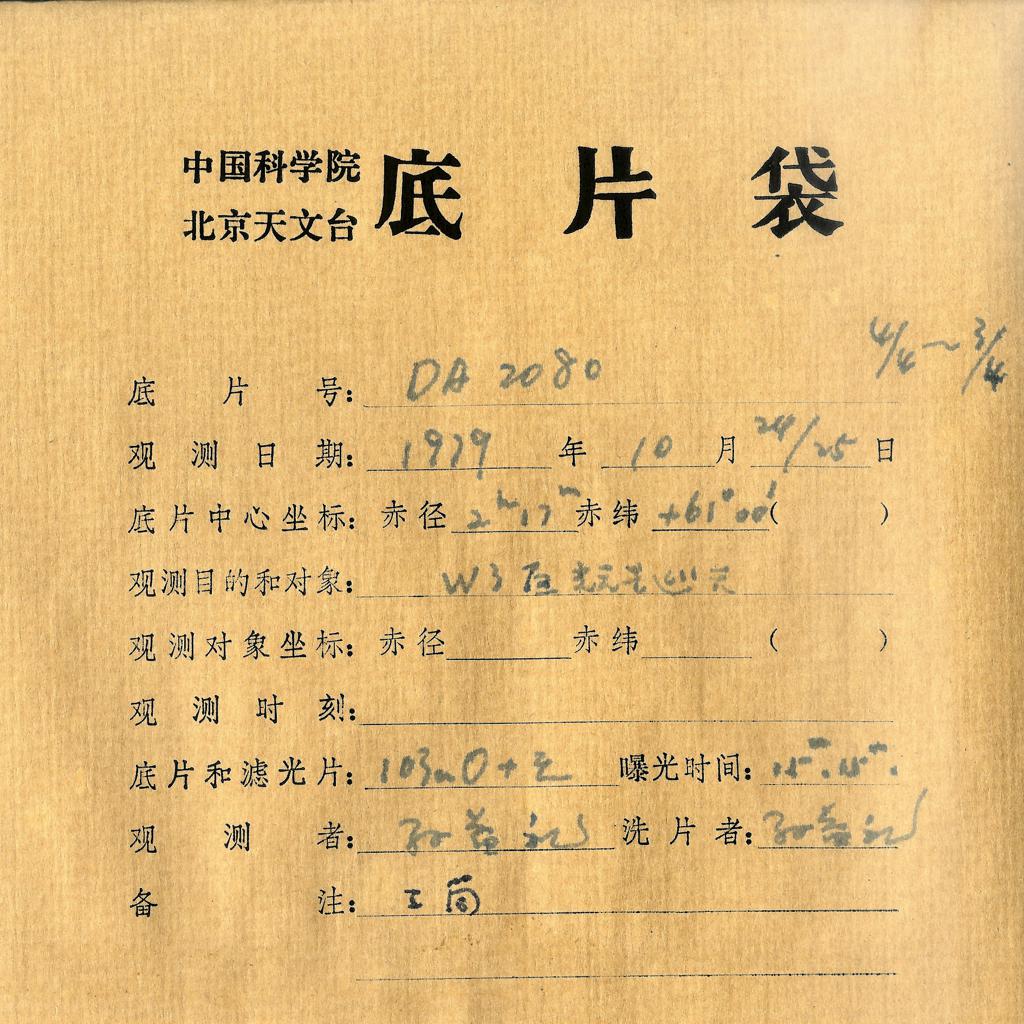 中国科学院
北京天文台
底片袋
4/4~3/4
底片号: DA 2080
观测日期: 1979年10月24/25日
底片中心坐标: 赤径 2h17m 赤纬 +61°00′( )
观测目的和对象: W3 区 巡天
观测对象坐标: 赤径 赤纬 ( )
观测时刻:
底片和滤光片: 103aO+无 曝光时间: 15m.15m.
观测者: 孙益礼 洗片者: 孙益礼
备注: